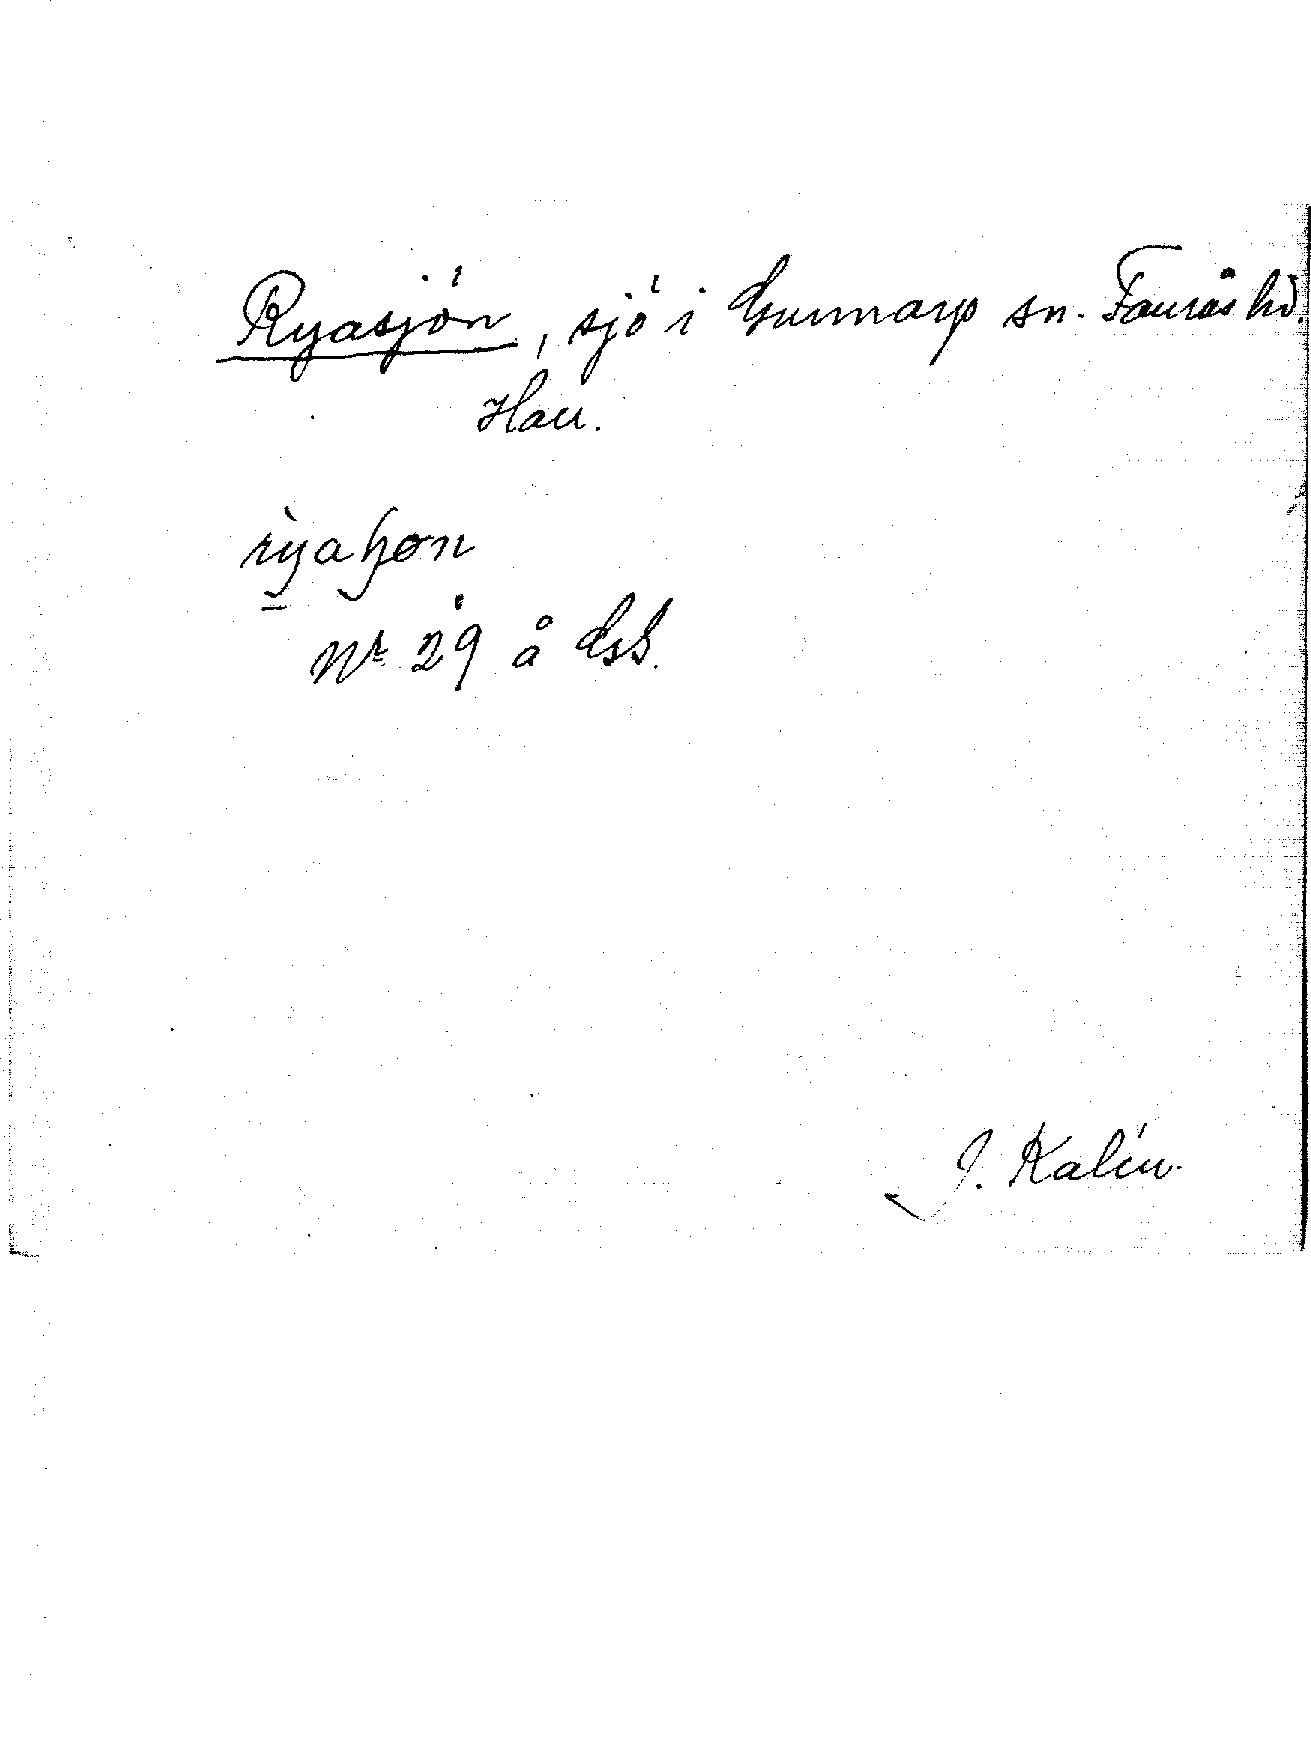 Ryasjön, sjö i Gunnarp sn. Faurås hd.
Hall.
Nr 29 å Gsk.
J. Kalén.